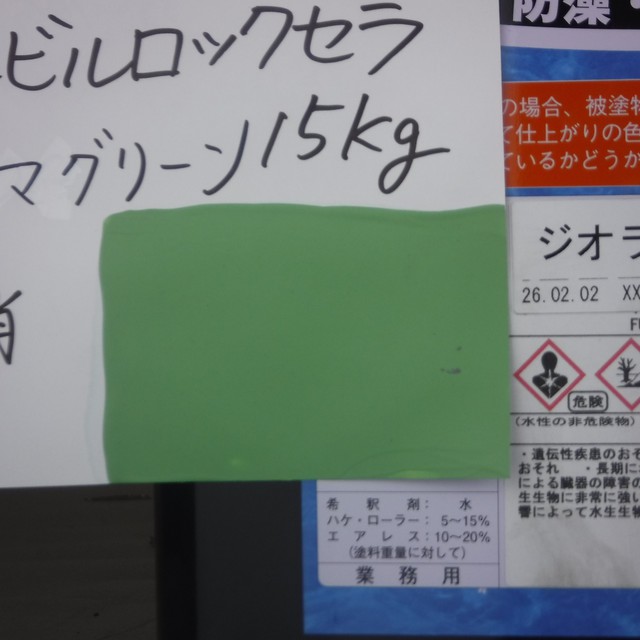 ビルロックセラ
マグリーン 15kg
防藻・
の場合、被塗物
て仕上がりの色
ているかどうか
ジオラ
26.02.02 XX
危険
(水性の非危険物)
・遺伝性疾患のおそ
おそれ ・長期に
による臓器の障害の
生生物に非常に強い
響によって水生生物
希釈剤: 水
ハケ・ローラー: 5～15%
エアレス: 10～20%
(塗料重量に対して)
業務用